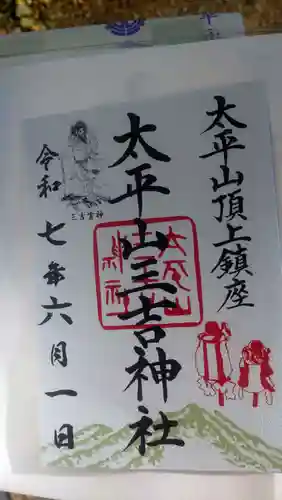 太平山頂上鎮座
太平山三吉神社
三吉霊神
令和七年六月一日
太平山